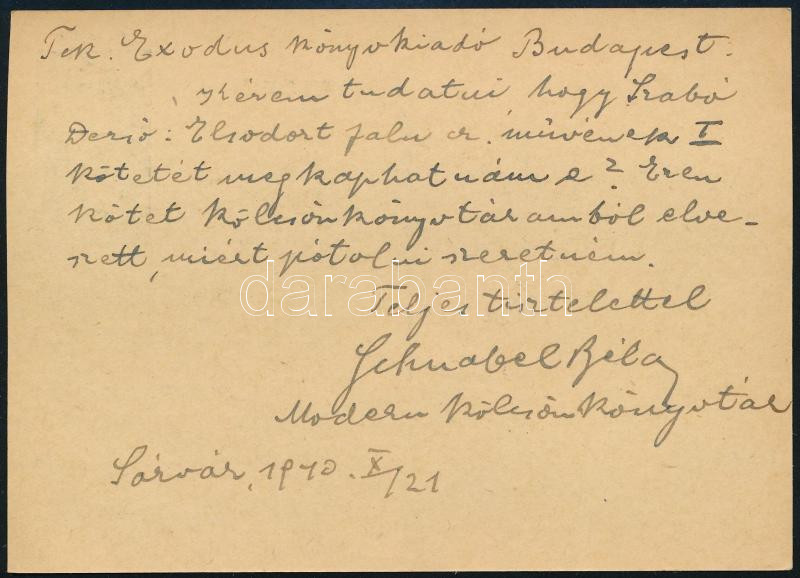 Tek. Exodus könyvkiadó Budapest.
Kérem tudatni hogy Szabó
Dezső: Elsodort falu c. művének I
kötetét megkaphatnám e? Ezen
kötet kölcsönkönyvtáramból elve-
szett, miért pótolni szeretném.
darabanth
Teljes tisztelettel
Schnabel Béla
Modern kölcsönkönyvtár
Sárvár, 1940. X/21